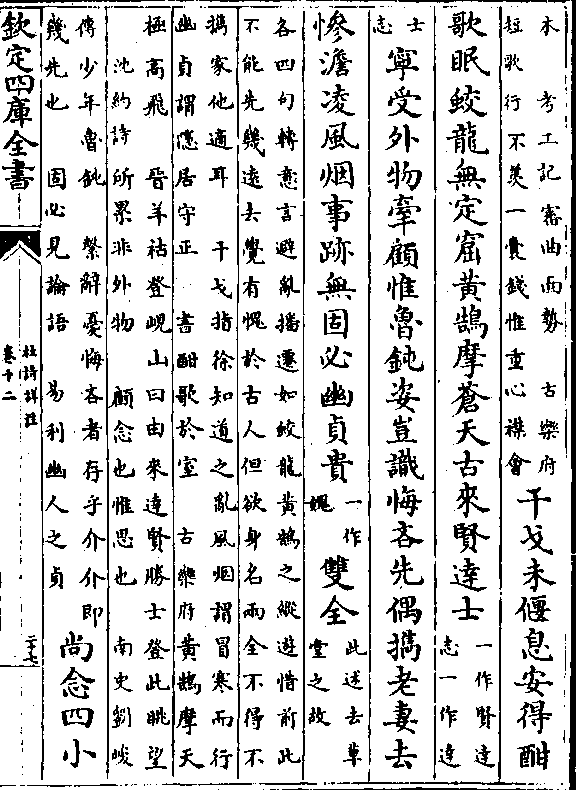 木　考工記審曲面勢　古樂府
短歌行不羨一囊錢惟重心襟會
干戈未偃息安得酣
歌眠蛟龍無定窟黃鵠摩蒼天古來賢達士
一作賢達
志一作達
士
志
寧受外物牽顧惟魯鈍姿豈識悔吝先偶攜老妻去
慘澹凌風烟事跡無固必幽貞貴
一作
媿
雙全
此述去草
堂之故
各四句轉意言避亂播遷如蛟龍黃鵠之縱遊惜前此
不能先幾遠去覺有愧於古人但欲身名兩全不得不
攜家他適耳　干戈指徐知道之亂風烟謂冒寒而行
幽貞謂隱居守正　書酣歌於室　古樂府黃鵠摩天
極高飛　晉羊祜登峴山曰由來達賢勝士登此眺望
沈約詩所累非外物　顧念也惟思也　南史劉峻
傳少年魯鈍　繫辭憂悔吝者存乎介介即
幾先也　固必見論語　易利幽人之貞
尚念四小
欽定四庫全書
杜詩詳註
卷十二
二十七